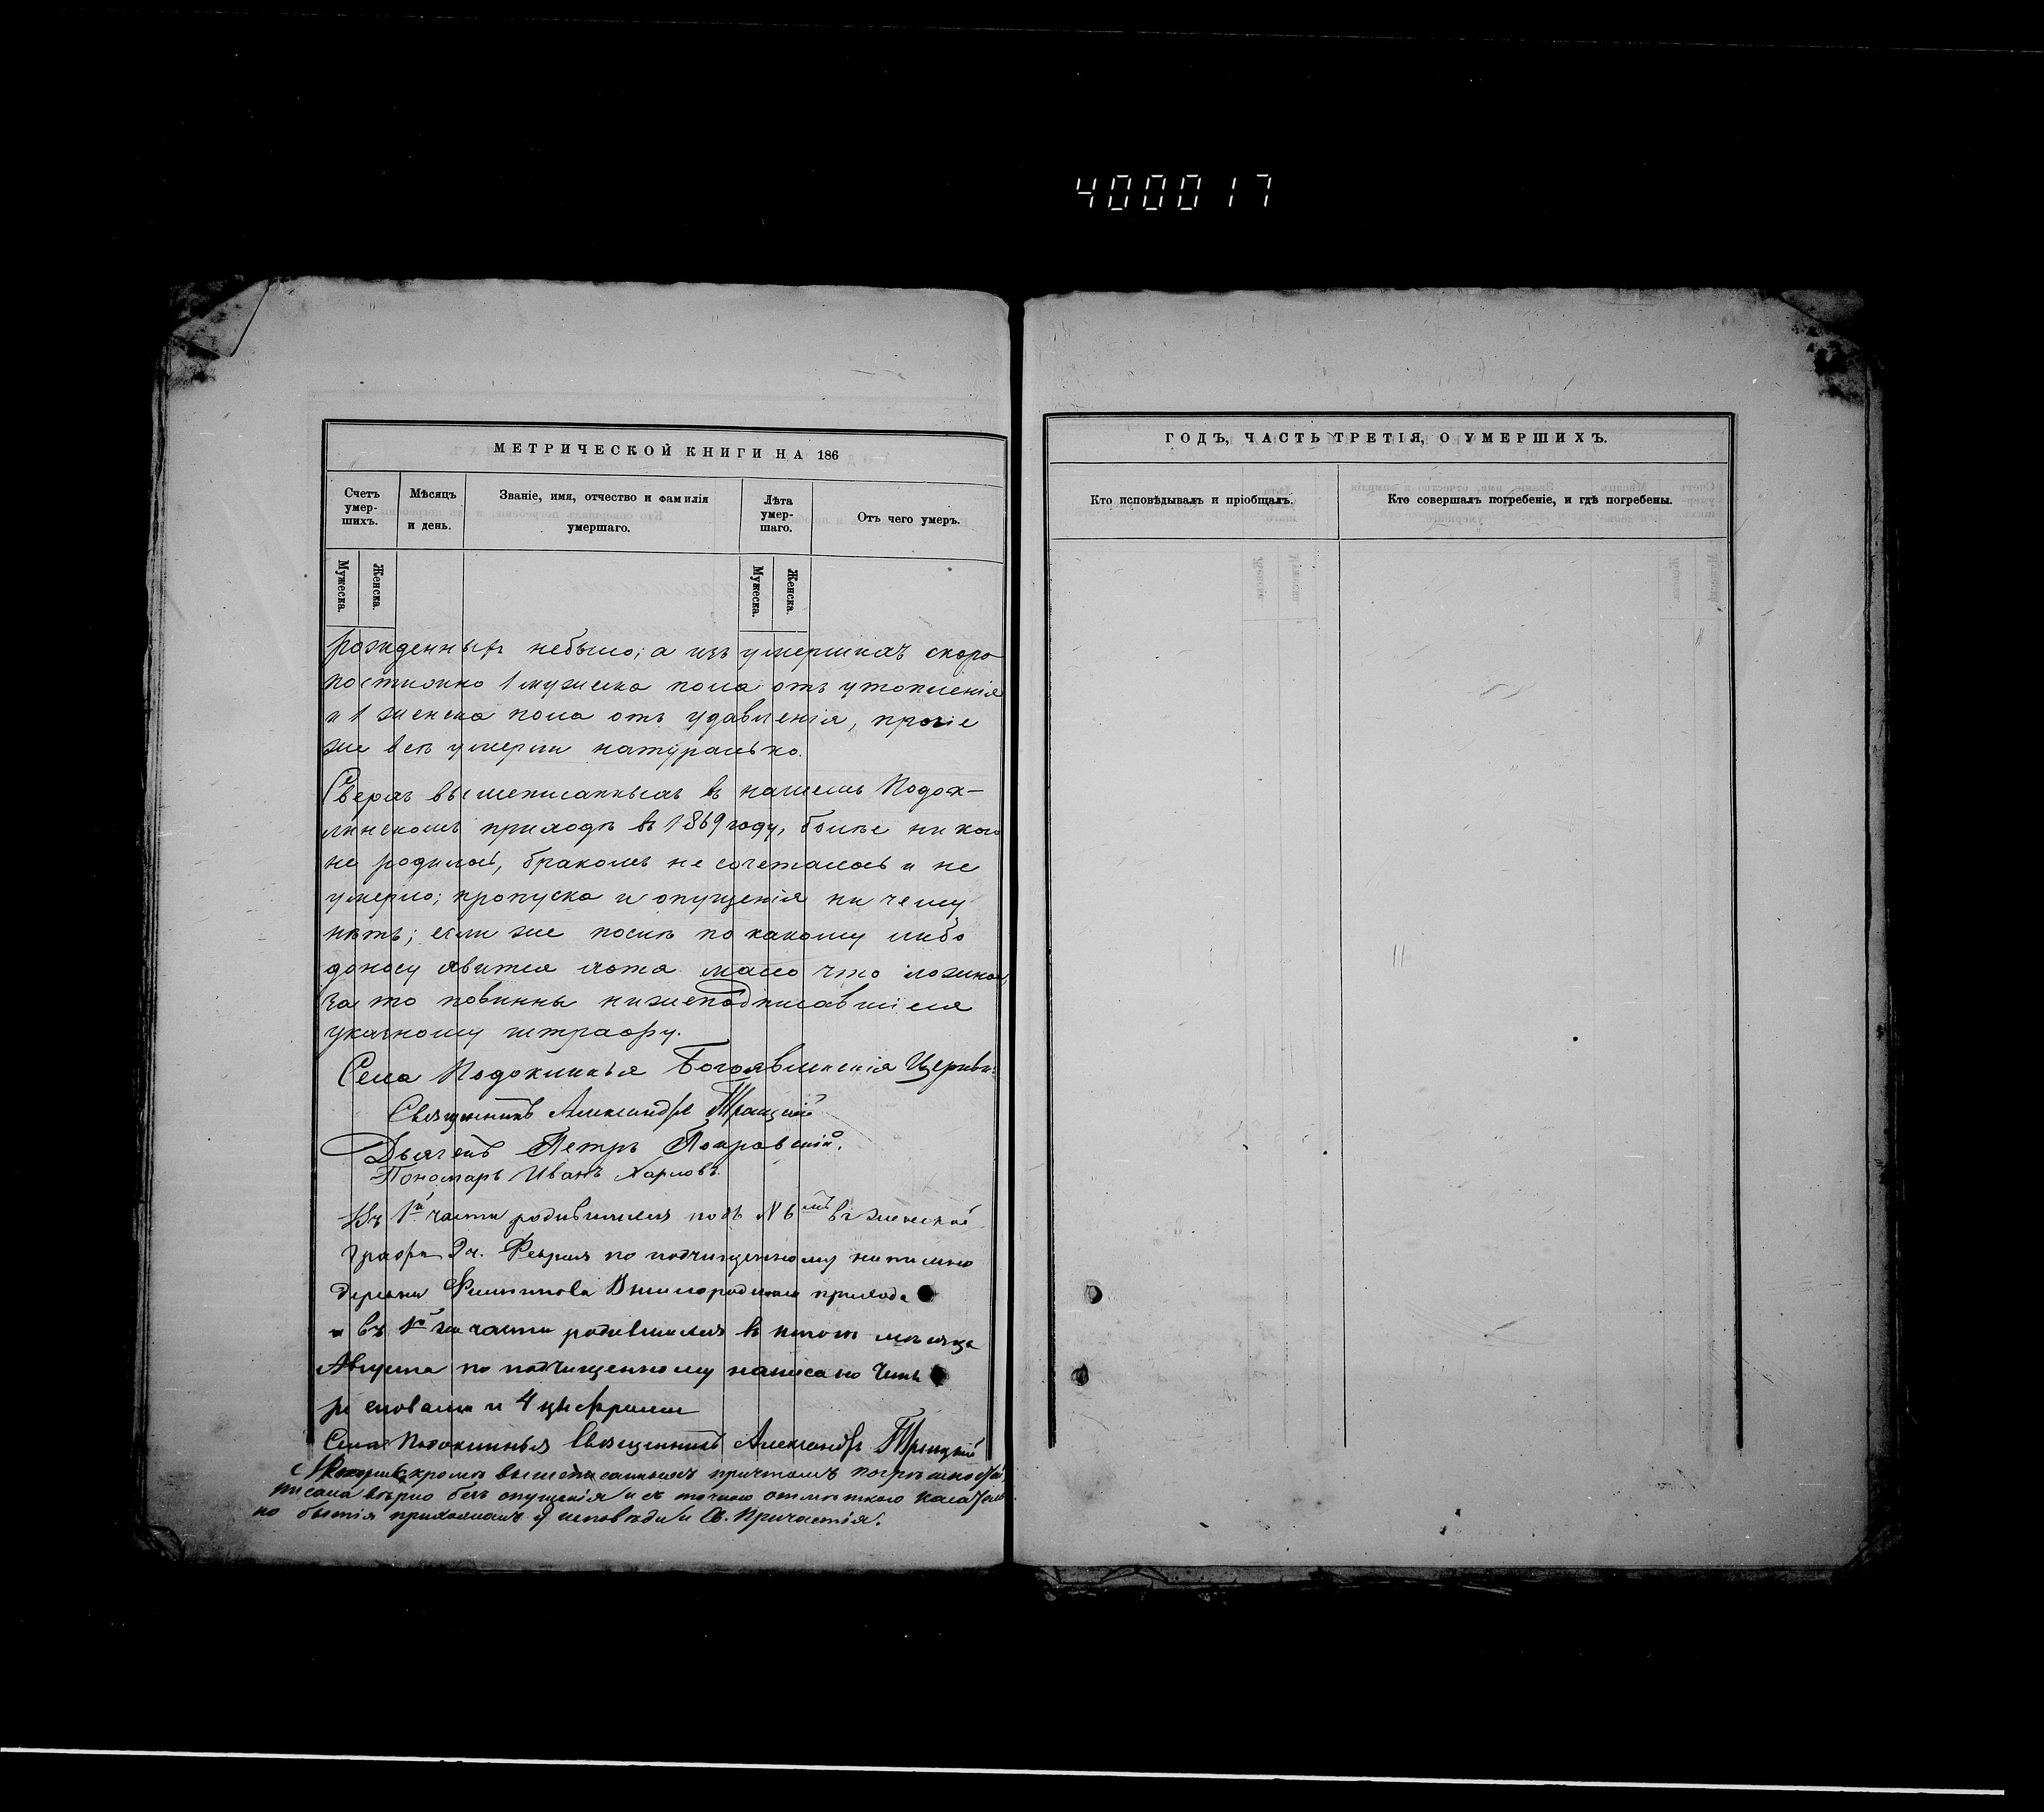 400017
МЕТРИЧЕСКОЙ КНИГИ НА 186
Счетъ умер-
шихъ.
Мѣсяцъ
и день.
Званіе, имя, отчество и фамилія
умершаго.
Лѣта
умер-
шаго.
Отъ чего умеръ.
Мужеска.
Женска.
Мужеска.
Женска.
рожденныхъ небыло; а изъ умершихъ скоро
постижно 1 мужеска пола отъ утопленія
и 1 женска пола отъ удавленія, прочіе
же всѣ умерли натурально.
Сверхъ вышеписанныхъ въ нашемъ Подок-
линскомъ приходѣ въ 1869 году, болѣе ни кого
не родилось, бракомъ не сочеталось и не
умерло; пропуска и опущенія ни чему
нѣтъ; если же послѣ по какому либо
доносу явится хотя мало что ложно,
за то повинны нижеподписавшіеся
указному штрафу.
Села Подоклинья Богоявленія Церкви:
Священникъ Александръ Троицкій
Дьячекъ Петръ Покровскій.
Пономарь Иванъ Харловъ.
Въ 1й части родившихся подъ N 6мъ въ женской
графѣ 2ч. Февраля по подчищенному написано
деревни Филиппова Вышгородскаго прихода
и въ 1й же части родившихся въ итогѣ мѣсяца
Августа по подчищенному написано четы
ре словами и 4 цыфрами
Села Подоклинья Священникъ Александръ Троицкій
кромѣ вышеписанныхъ причтомъ погрѣшностей,
писана вѣрно безъ опущенія и съ точною отмѣткою касатель
но бытія прихожанъ у исповѣди и Св. Причастія.
ГОДЪ, ЧАСТЬ ТРЕТІЯ, О УМЕРШИХЪ.
Кто исповѣдывалъ и пріобщалъ.
Кто совершалъ погребеніе, и гдѣ погребены.